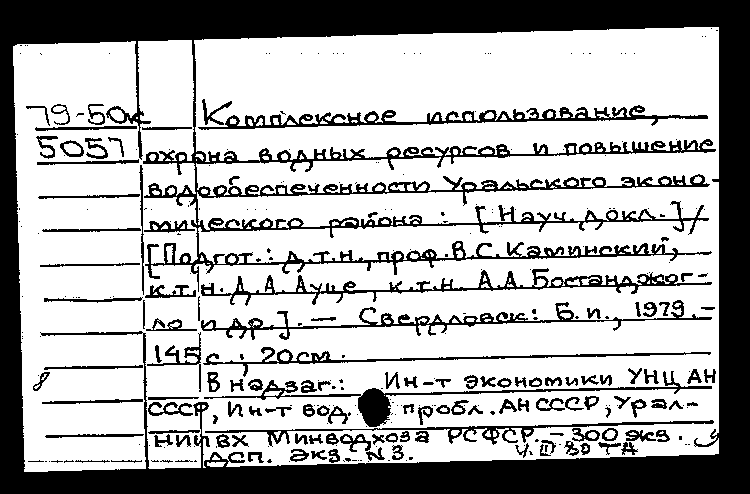 79-50к Комплексное использование,
5057 охрана водных ресурсов и повышение
водообеспеченности Уральского эконо-
мического района : [ Науч. докл. ] /
[Подгот.: д.т.н., проф. В.С. Каминский,
к.т.н. Д.А. Ауце, к.т.н. А.А. Бостанджог-
ло и др. ]. — Свердловск: Б.и., 1979. –
145 с. ; 20 см.
8 В надзаг.: Ин-т экономики УНЦ АН
СССР, Ин-т вод. пробл. АН СССР, Урал-
НИИВХ Минводхоза РСФСР. – 300 экз.
ДСП. Экз. N 3.